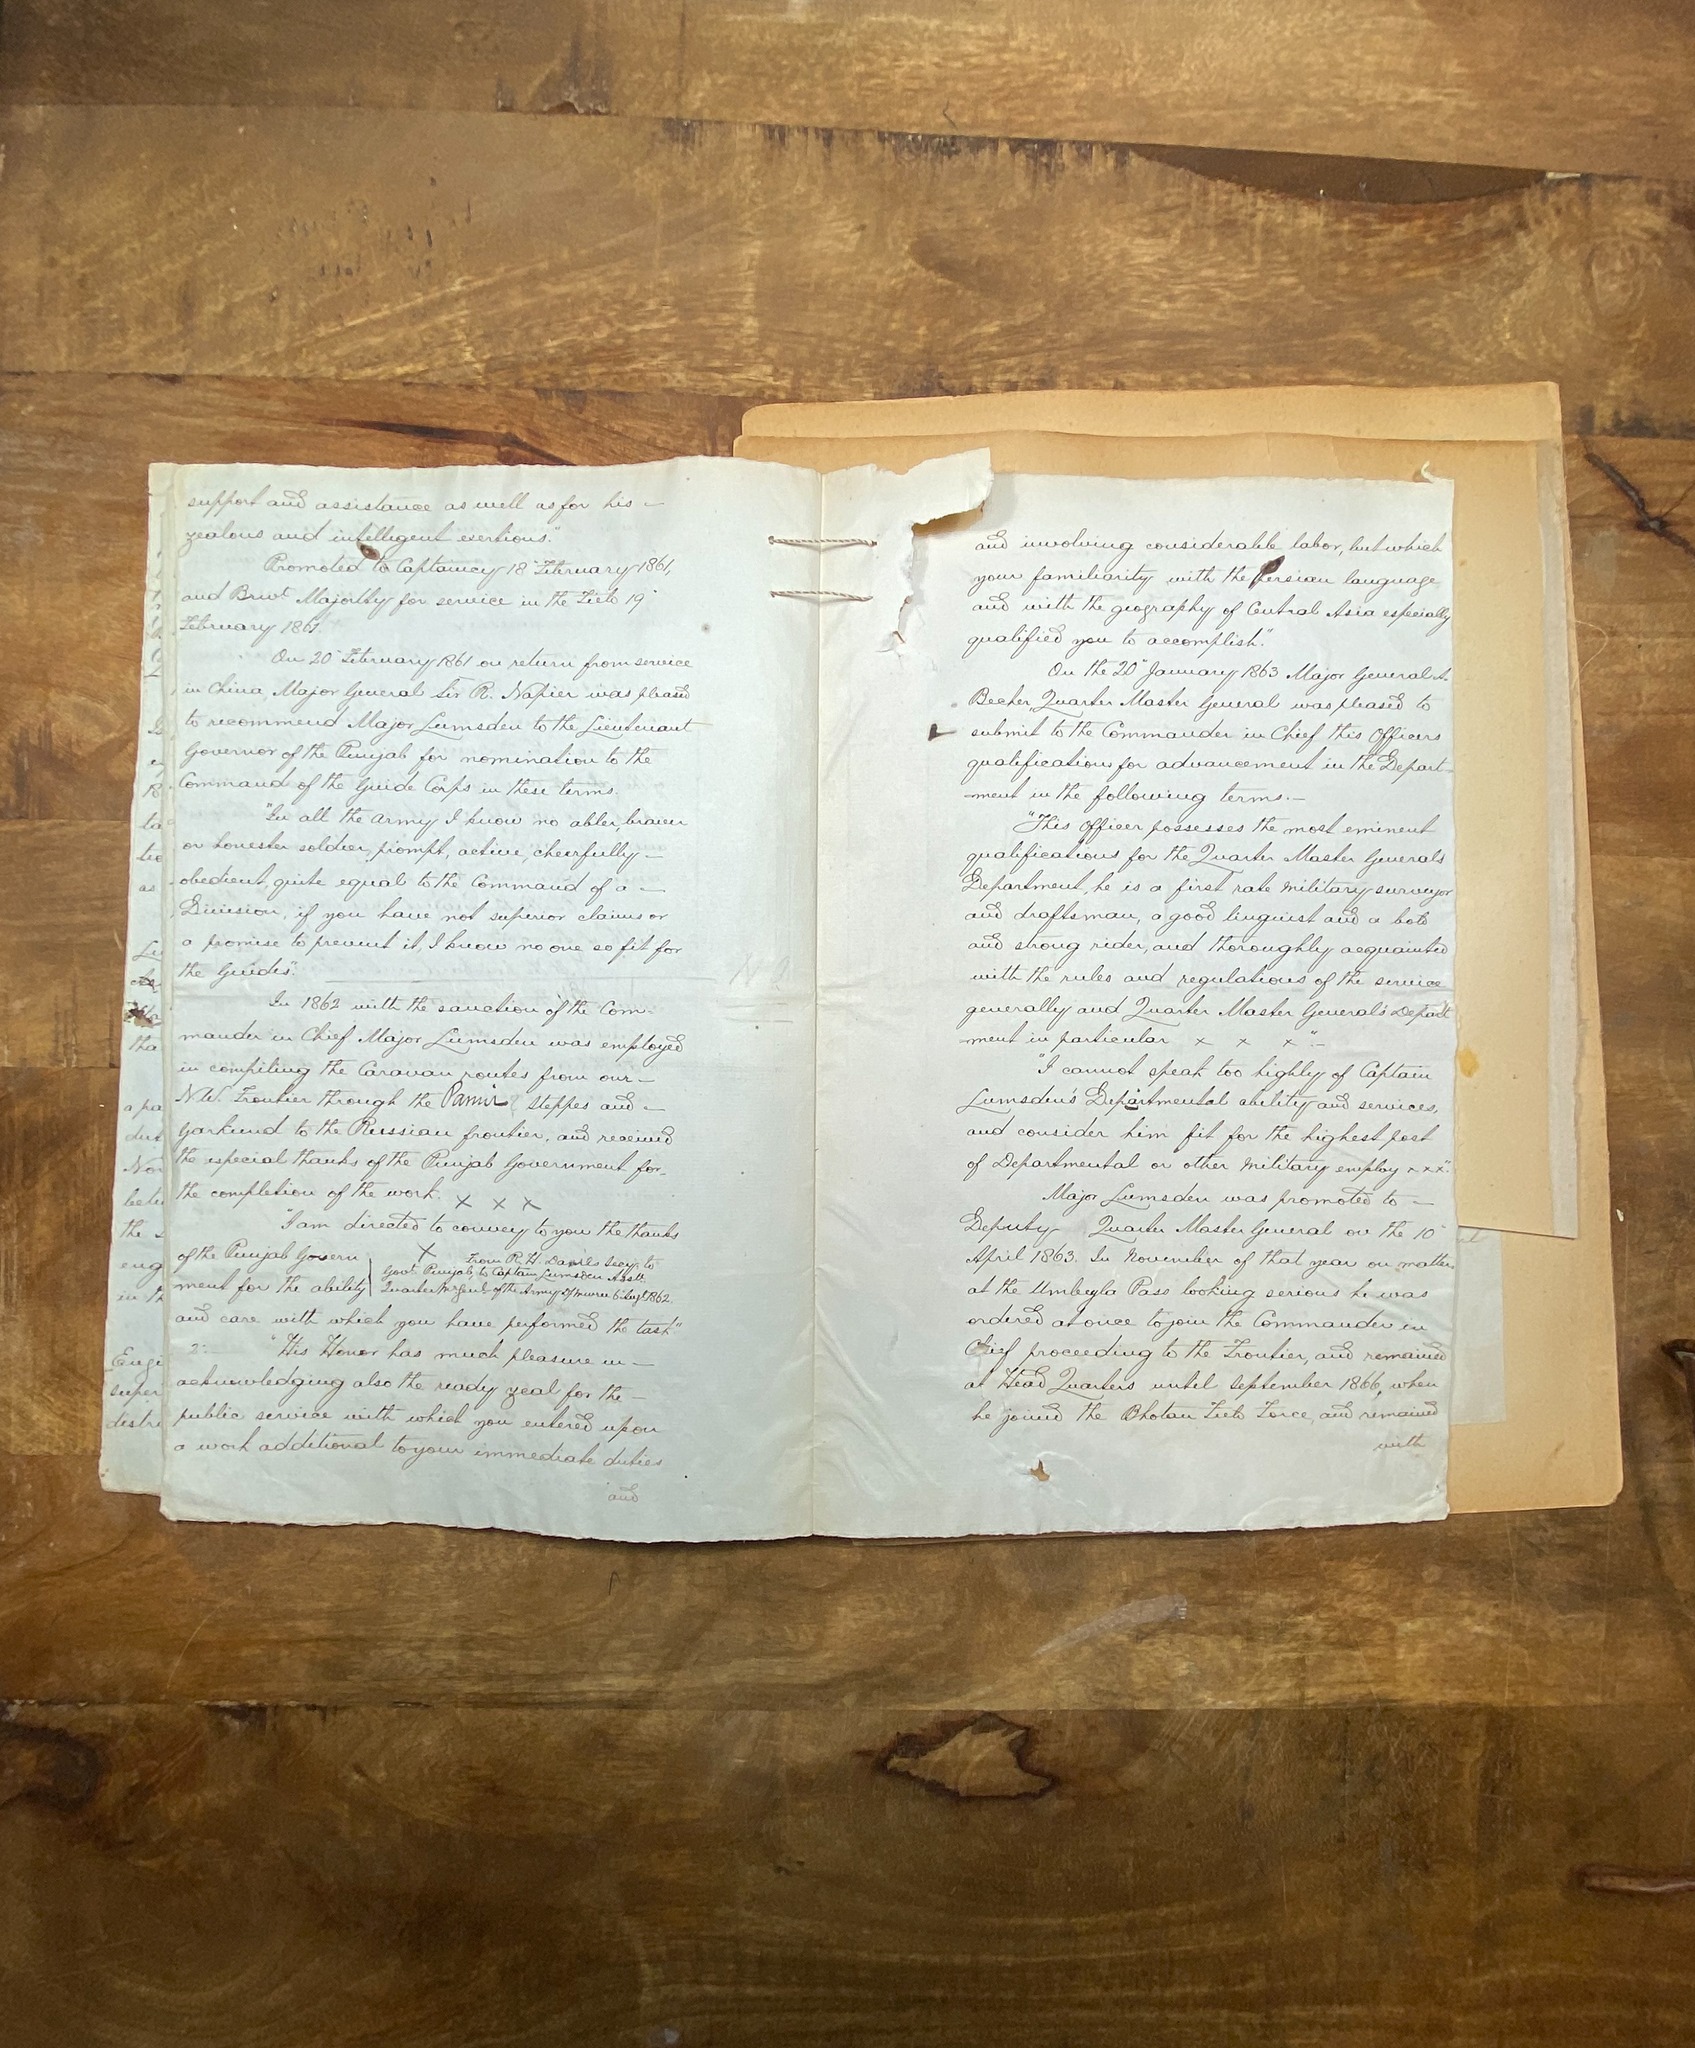 support and assistance as well as for his –
zealous and intelligent exertions."
Promoted to Captaincy 18" February 1861,
and Brevt Majority for service in the Field 19"
February 1861.
On 20" February 1861 on return from service
in China, Major General Sir R. Napier was pleased
to recommend Major Lumsden to the Lieutenant
Governor of the Punjab for nomination to the
Command of the Guide Corps in these terms.
"In all the Army I know no abler, braver
or honester soldier, prompt, active, cheerfully –
obedient, quite equal to the Command of a –
Division, if you have not superior claims or
a promise to prevent it, I know no one so fit for
the Guides".
In 1862 with the sanction of the Com-
mander in Chief Major Lumsden was employed
in compiling the Caravan routes from our –
N.W. Frontier through the Pamir steppes and –
Yarkund to the Russian frontier, and received
the especial thanks of the Punjab Government for
the completion of the work. x x x
"I am directed to convey to you the thanks
of the Punjab Govern
ment for the ability
x From R. H. Davies Secy. to
Govt. Punjab, to Captain Lumsden Asstt
Quarter Mr Genl. of the Army Murree 6 Augt 1862.
and care with which you have performed the task"
2. – "His Honor has much pleasure in –
acknowledging also the ready zeal for the –
public service with which you entered upon
a work additional to your immediate duties
and
and involving considerable labor, but which
your familiarity with the Persian language
and with the geography of Central Asia especially
qualified you to accomplish."
On the 20" January 1863 Major General A.
Becher, Quarter Master General was pleased to
submit to the Commander in Chief this Officers
qualifications for advancement in the Depart-
-ment in the following terms. –
"This Officer possesses the most eminent
qualifications for the Quarter Master Generals
Department, he is a first rate Military surveyor
and draftsman, a good linguist and a bold
and strong rider, and thoroughly acquainted
with the rules and regulations of the service
generally and Quarter Master General's Depart
-ment in particular x x x" –
"I cannot speak too highly of Captain
Lumsden's Departmental ability and services,
and consider him fit for the highest post
of Departmental or other Military employ x x x".
Major Lumsden was promoted to –
Deputy Quarter Master General on the 10"
April 1863. In November of that year on matters
at the Umbeyla Pass looking serious he was
ordered at once to join the Commander in
Chief proceeding to the Frontier, and remained
at Head Quarters until September 1866, when
he joined the Bhotan Field Force, and remained
with